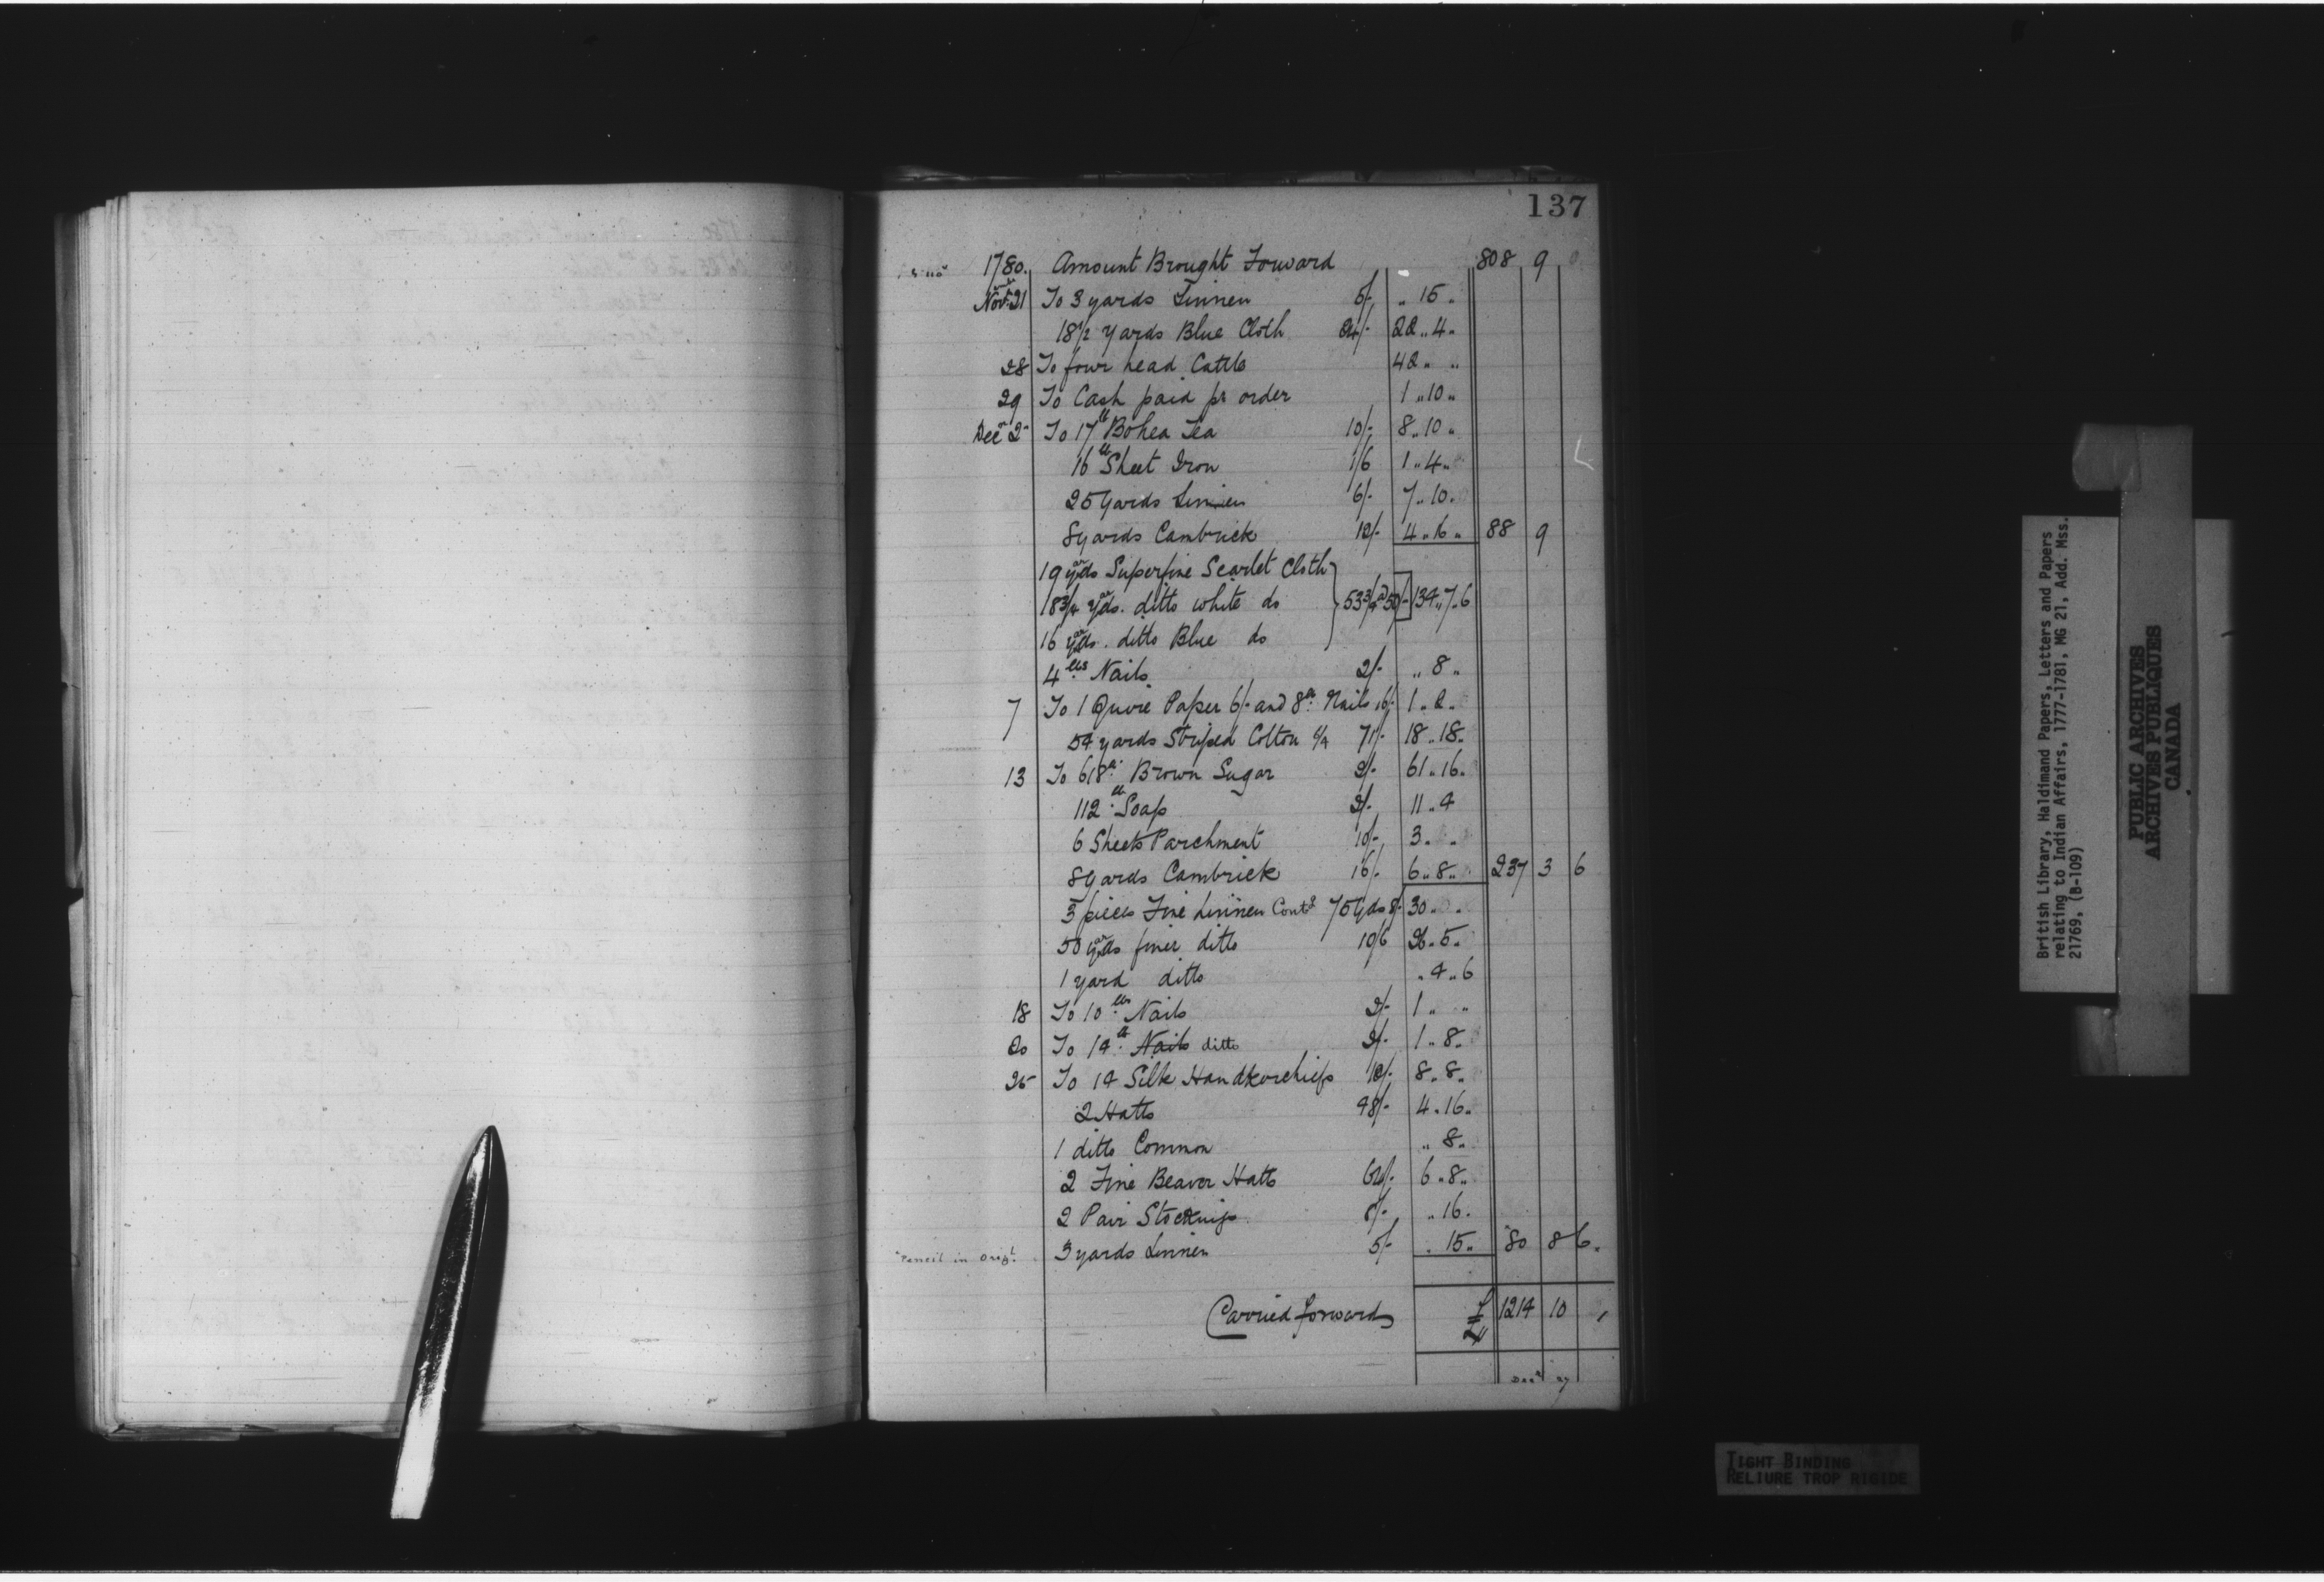 137
1780. Amount Brought Forward 808 9
Novr 21 To 3 yards Linnen 5/- " 15 "
18½ yards Blue Cloth 24/- 22 .. 4 "
28 To four head Cattle 42 " "
29 To Cash paid pr order 1 .. 10 "
Decr 2 To 17 lb Bohea Tea 10/- 8 .. 10 "
16 lb Sheet Iron 1/6 1 .. 4 "
25 Yards Linnen 6/- 7 .. 10 "
8 yards Cambrick 12/- 4 .. 16 " 88 9
19 yards Superfine Scarlet Cloth
18¾ yards. ditto white do } 53¾ a 50/- 134 .. 7 .. 6
16 yards. ditto Blue do
4 lbs Nails 2/- " 8 "
7 To 1 Quire Paper 6/- and 8 lb Nails 16/- 1 .. 2 "
54 yards Striped Cotton 6/4 7/- 18 .. 18 "
13 To 618 lb Brown Sugar 2/- 61 .. 16 "
112 lb Soap 2/- 11 .. 4
6 Sheets Parchment 10/- 3 " "
8 yards Cambrick 16/- 6 .. 8 " 237 3 6
3 pieces Fine Linnen Contd 75 yds 8/- 30 " "
50 yards finer ditto 10/6 26 .. 5 "
1 yard ditto " 4 .. 6
18 To 10 lbs Nails 2/- 1 " "
20 To 14 lb Nails ditto 2/- 1 .. 8 "
25 To 14 Silk Handkerchiefs 12/- 8 .. 8 "
2 Hatts 48/- 4 .. 16 "
1 ditto Common " 8 "
2 Fine Beaver Hatts 64/- 6 .. 8 "
2 Pair Stockings 8/- " 16 "
"Pencil in Origl. 3 yards Linnen 5/- " 15 " "80 8 6 "
Carried forward £ 1214 10 ,
Decr 27
British Library, Haldimand Papers, Letters and Papers
relating to Indian Affairs, 1777-1781, MG 21, Add. Mss.
21769, (B-109)
PUBLIC ARCHIVES
ARCHIVES PUBLIQUES
CANADA
TIGHT BINDING
RELIURE TROP RIGIDE